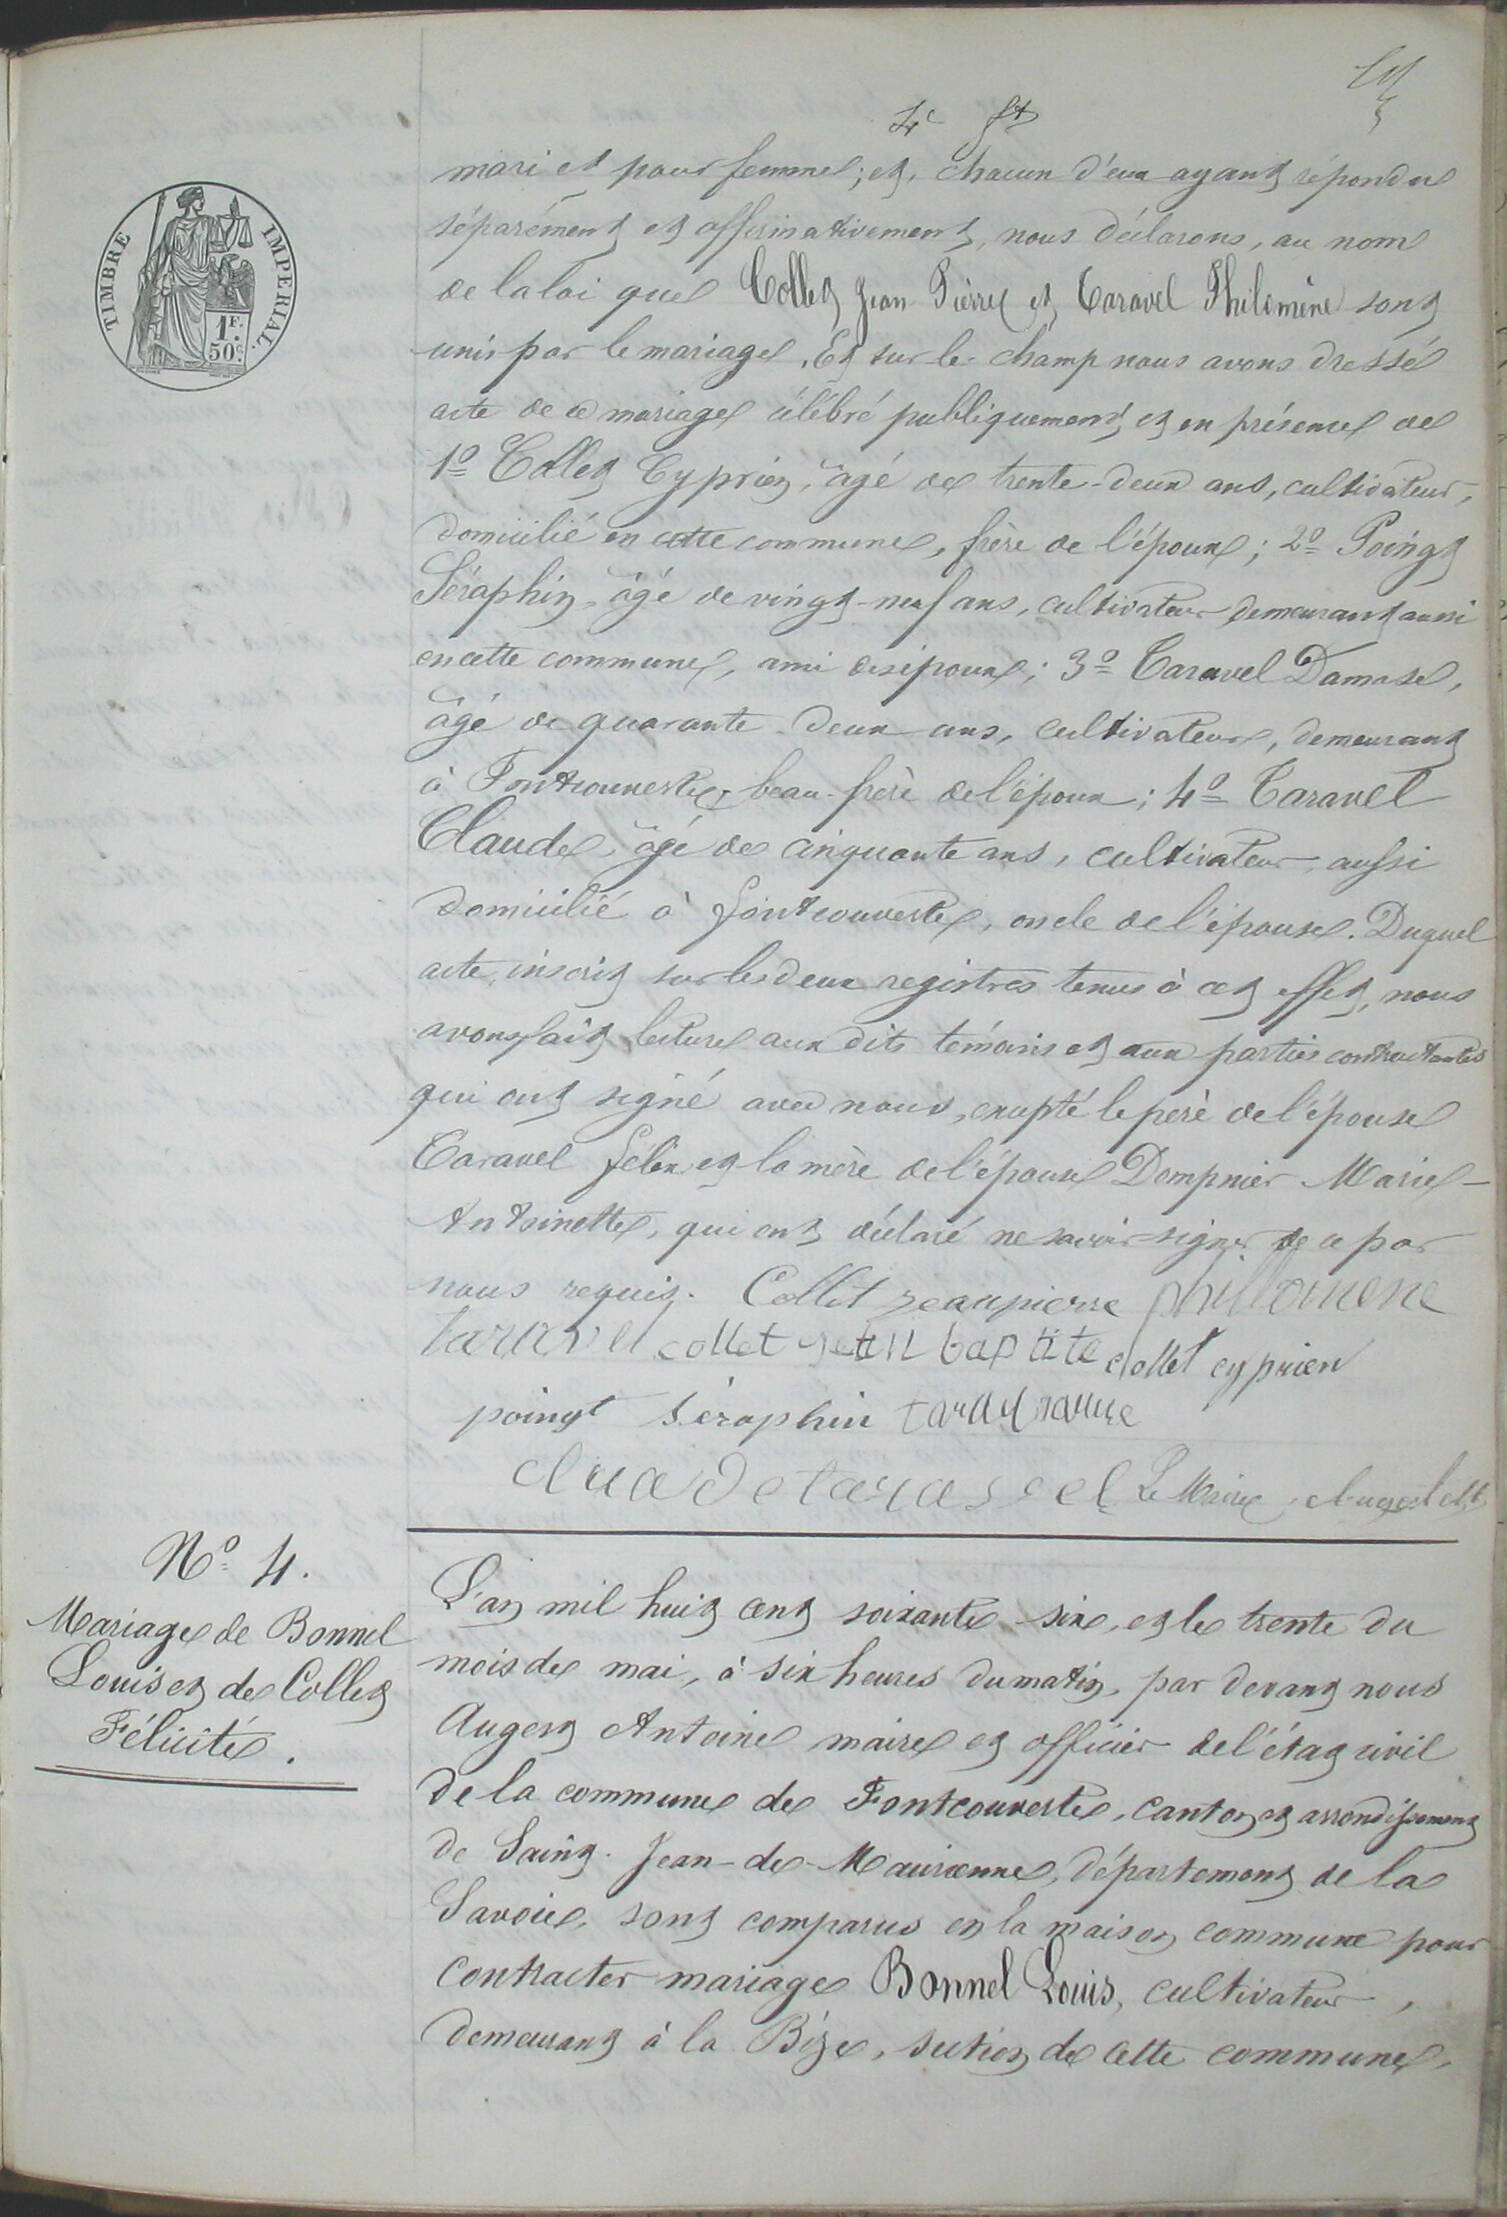 4e ft
mari et pour femme; et, chacun d'eux ayant répondu
séparément et affirmativement, nous déclarons, au nom
de la loi que Collet Jean Pierre et Taravel Philomène sont
unis par le mariage. Et sur le champ nous avons dressé
acte de ce mariage célébré publiquement, et en présence de
1o Collet Cyprien, âgé de trente-deux ans, cultivateur,
domicilié en cette commune, frère de l'époux; 2o Poingt
Séraphin, âgé de vingt-neuf ans, cultivateur demeurant aussi
en cette commune, ami des époux; 3o Taravel Damase,
âgé de quarante-deux ans, cultivateur, demeurant
à Fontcouverte, beau-frère de l'époux; 4o Taravel
Claude, âgé de cinquante ans, cultivateur, aussi
domicilié à fontcouverte, oncle de l'épouse. Duquel
acte, inscrit sur les deux registres tenus à cet effet, nous
avons fait lecture aux dits témoins et aux parties contractantes
qui ont signé avec nous, excepté le père de l'épouse
Taravel félix et la mère de l'épouse Dompnier Marie-
Antoinette, qui ont déclaré ne savoir signer de ce par
nous requis. Collet jeanpierre philomene
taravel collet jean baptite collet cyprien
poingt séraphin
cluade taravel Le Maire,
TIMBRE IMPERIAL.
1F.
50c.
No 4.
Mariage de Bonnel
Louis et de Collet
Félicité.
L'an mil huit cent soixante-six, et le trente du
mois de mai, à six heures du matin, par devant nous
Augert Antoine maire et officier de l'état civil
de la commune de Fontcouverte, canton et arrondissement
de Saint-Jean-de-Maurienne, département de la
Savoie, sont comparus en la maison commune pour
contracter mariage Bonnel Louis, cultivateur,
demeurant à la Bise, section de cette commune,